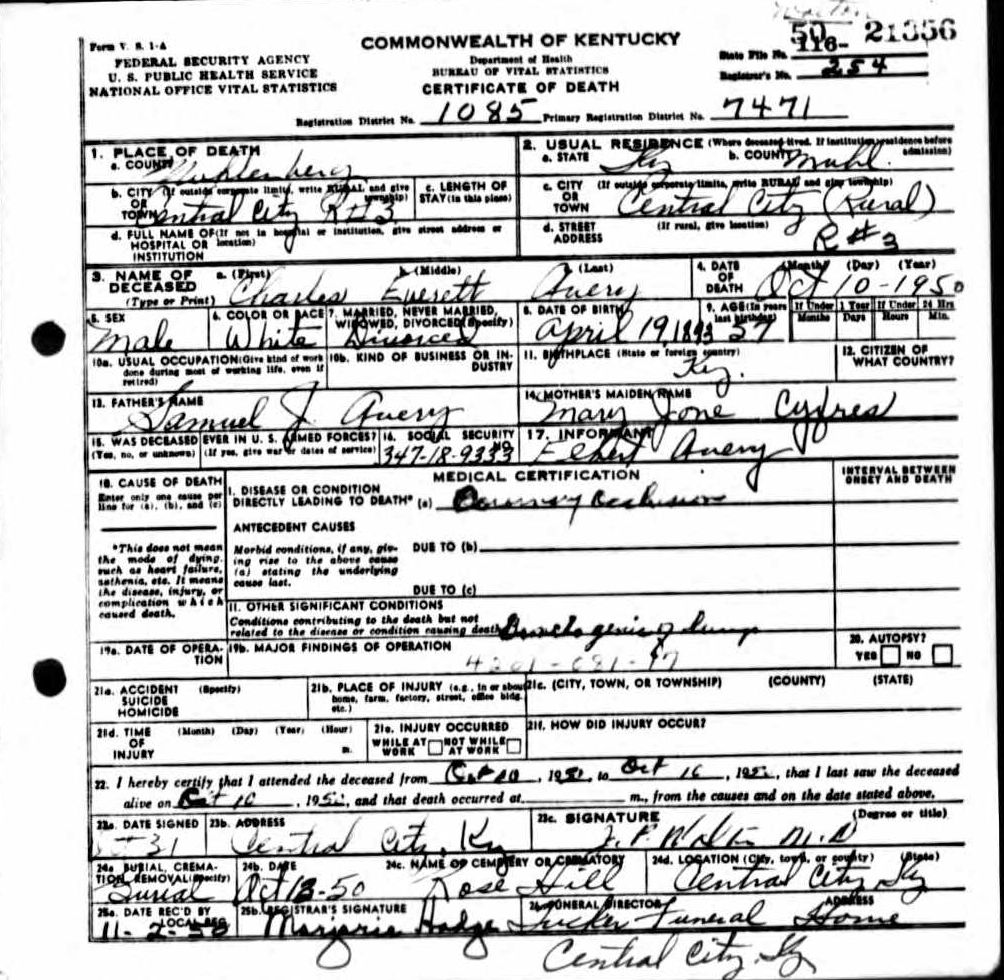 50 21356
Form V. S. 1-A
COMMONWEALTH OF KENTUCKY
116-
State File No.
FEDERAL SECURITY AGENCY
Department of Health
U. S. PUBLIC HEALTH SERVICE
BUREAU OF VITAL STATISTICS
Registrar's No. 254
NATIONAL OFFICE VITAL STATISTICS
CERTIFICATE OF DEATH
Registration District No. 1085 Primary Registration District No. 7471
1. PLACE OF DEATH
a. COUNTY Muhlenberg
2. USUAL RESIDENCE (Where deceased lived. If institution: residence before admission)
a. STATE Ky b. COUNTY Muhl.
b. CITY (If outside corporate limits, write RURAL and give township)
OR TOWN Central City R#3
c. LENGTH OF STAY (in this place)
c. CITY (If outside corporate limits, write RURAL and give township)
OR TOWN Central City (Rural)
d. FULL NAME OF (If not in hospital or institution, give street address or location)
HOSPITAL OR INSTITUTION
d. STREET ADDRESS (If rural, give location)
R #3
3. NAME OF DECEASED (Type or Print)
a. (First) b. (Middle) (Last)
Charles Everett Avery
4. DATE OF DEATH (Month) (Day) (Year)
Oct 10-1950
5. SEX
Male
6. COLOR OR RACE
White
7. MARRIED, NEVER MARRIED, WIDOWED, DIVORCED (Specify)
Divorced
8. DATE OF BIRTH
April 19, 1893
9. AGE (In years last birthday) 57
If Under 1 Year Months Days
If Under 24 Hrs Hours Min.
10a. USUAL OCCUPATION (Give kind of work done during most of working life, even if retired)
10b. KIND OF BUSINESS OR INDUSTRY
11. BIRTHPLACE (State or foreign country)
Ky.
12. CITIZEN OF WHAT COUNTRY?
13. FATHER'S NAME
Samuel J. Avery
14. MOTHER'S MAIDEN NAME
Mary Jone Cypres
15. WAS DECEASED EVER IN U. S. ARMED FORCES?
(Yes, no, or unknown) (If yes, give war or dates of service)
16. SOCIAL SECURITY NO
347-18-9333
17. INFORMANT
Elbert Avery
18. CAUSE OF DEATH
Enter only one cause per line for (a), (b), and (c)
MEDICAL CERTIFICATION
INTERVAL BETWEEN ONSET AND DEATH
I. DISEASE OR CONDITION
DIRECTLY LEADING TO DEATH* (a) Coronary Occlusion
ANTECEDENT CAUSES
*This does not mean the mode of dying, such as heart failure, asthenia, etc. It means the disease, injury, or complication which caused death.
Morbid conditions, if any, giving rise to the above cause (a) stating the underlying cause last.
DUE TO (b)
DUE TO (c)
II. OTHER SIGNIFICANT CONDITIONS
Conditions contributing to the death but not related to the disease or condition causing death
19a. DATE OF OPERATION
19b. MAJOR FINDINGS OF OPERATION
20. AUTOPSY?
YES NO
21a. ACCIDENT SUICIDE HOMICIDE (Specify)
21b. PLACE OF INJURY (e.g., in or about home, farm, factory, street, office bldg. etc.)
21c. (CITY, TOWN, OR TOWNSHIP) (COUNTY) (STATE)
21d. TIME OF INJURY (Month) (Day) (Year) (Hour) m.
21e. INJURY OCCURRED
WHILE AT WORK NOT WHILE AT WORK
21f. HOW DID INJURY OCCUR?
22. I hereby certify that I attended the deceased from Oct 10, 1950, to Oct 16, 1950, that I last saw the deceased
alive on Oct 10, 1950, and that death occurred at m., from the causes and on the date stated above.
23a. DATE SIGNED
31
23b. ADDRESS
Central City, Ky
23c. SIGNATURE (Degree or title)
M. D
24a. BURIAL, CREMATION, REMOVAL (Specify)
Burial
24b. DATE
Oct 13-50
24c. NAME OF CEMETERY OR CREMATORY
Rose Hill
24d. LOCATION (City, town, or county) (State)
Central City Ky
25a. DATE REC'D BY LOCAL REG.
11-2-50
25b. REGISTRAR'S SIGNATURE
Marjorie Hodge
26. FUNERAL DIRECTOR ADDRESS
Tucker Funeral Home
Central City, Ky